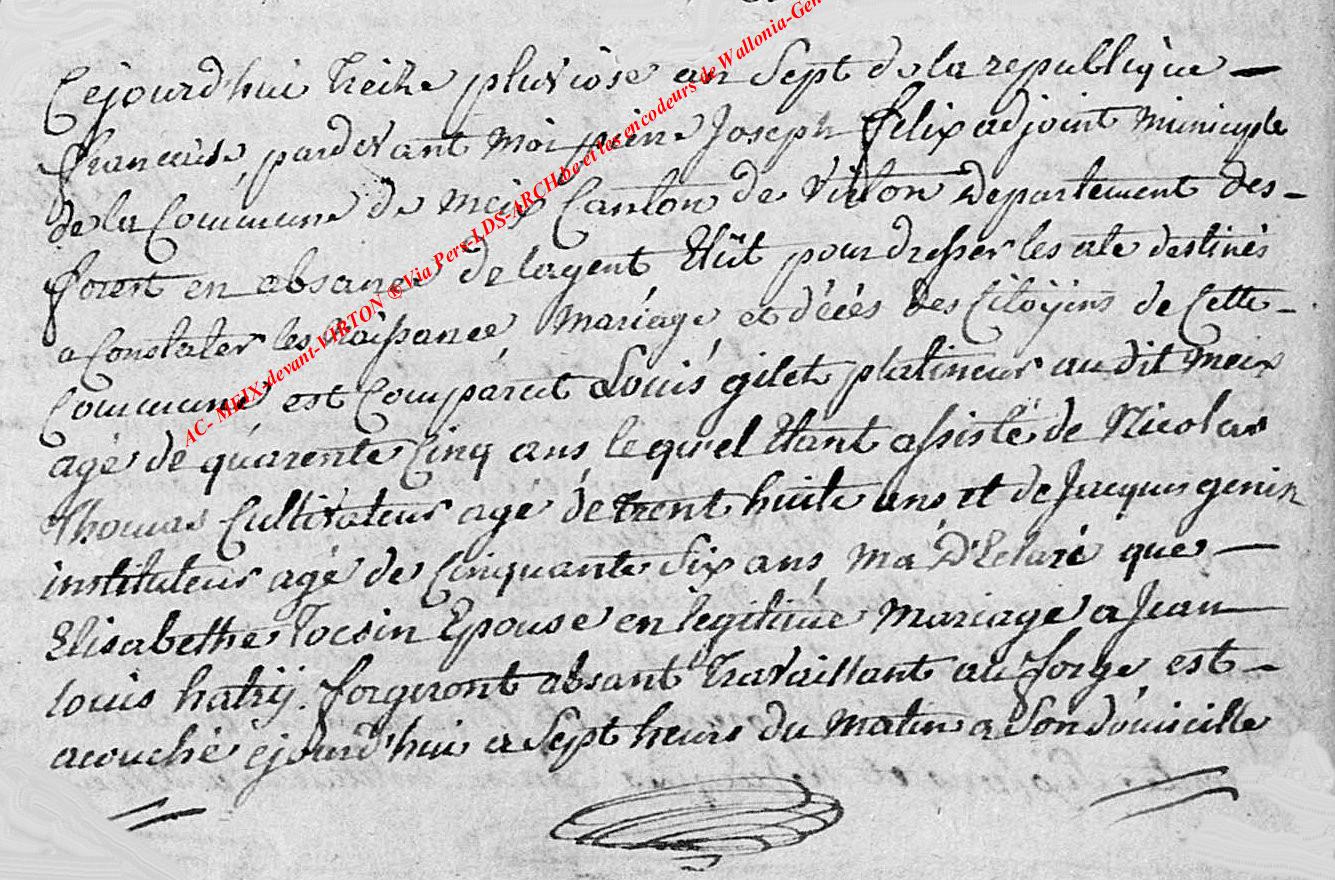 Cejourd'hui treize pluviose an Sept de la republique —
francaise, pardevant moi pierre Joseph felix adjoint municiple
de la Commune de Meix Canton de Virton Departement des-
forest en absance de lagent Elût pour dresser les ate destinés
a Constater les Naissance Mariage et décés des Citoÿins de Cette-
Commune est Comparut Louis gilet platineur au dit Meix
agé de quarente Cinq ans le quel Etant assisté de Nicolas
Thomas Cultivateur agé de trent huite ans et de Jacques genin
instituteur agé de Cinquante Six ans, ma D'Eclaré que —
Elisabethe Tocsin Epouse en legitime Mariage a Jean
louis hatrÿ. forgeront absant travaillant au forge est-
acouché ejourd'hui a Sept heurs du Matin a Son domicille
AC- MEIX-devant-VIRTON ®Via Pers-LDS-ARCH.be et les encodeurs de Wallonia-Gen